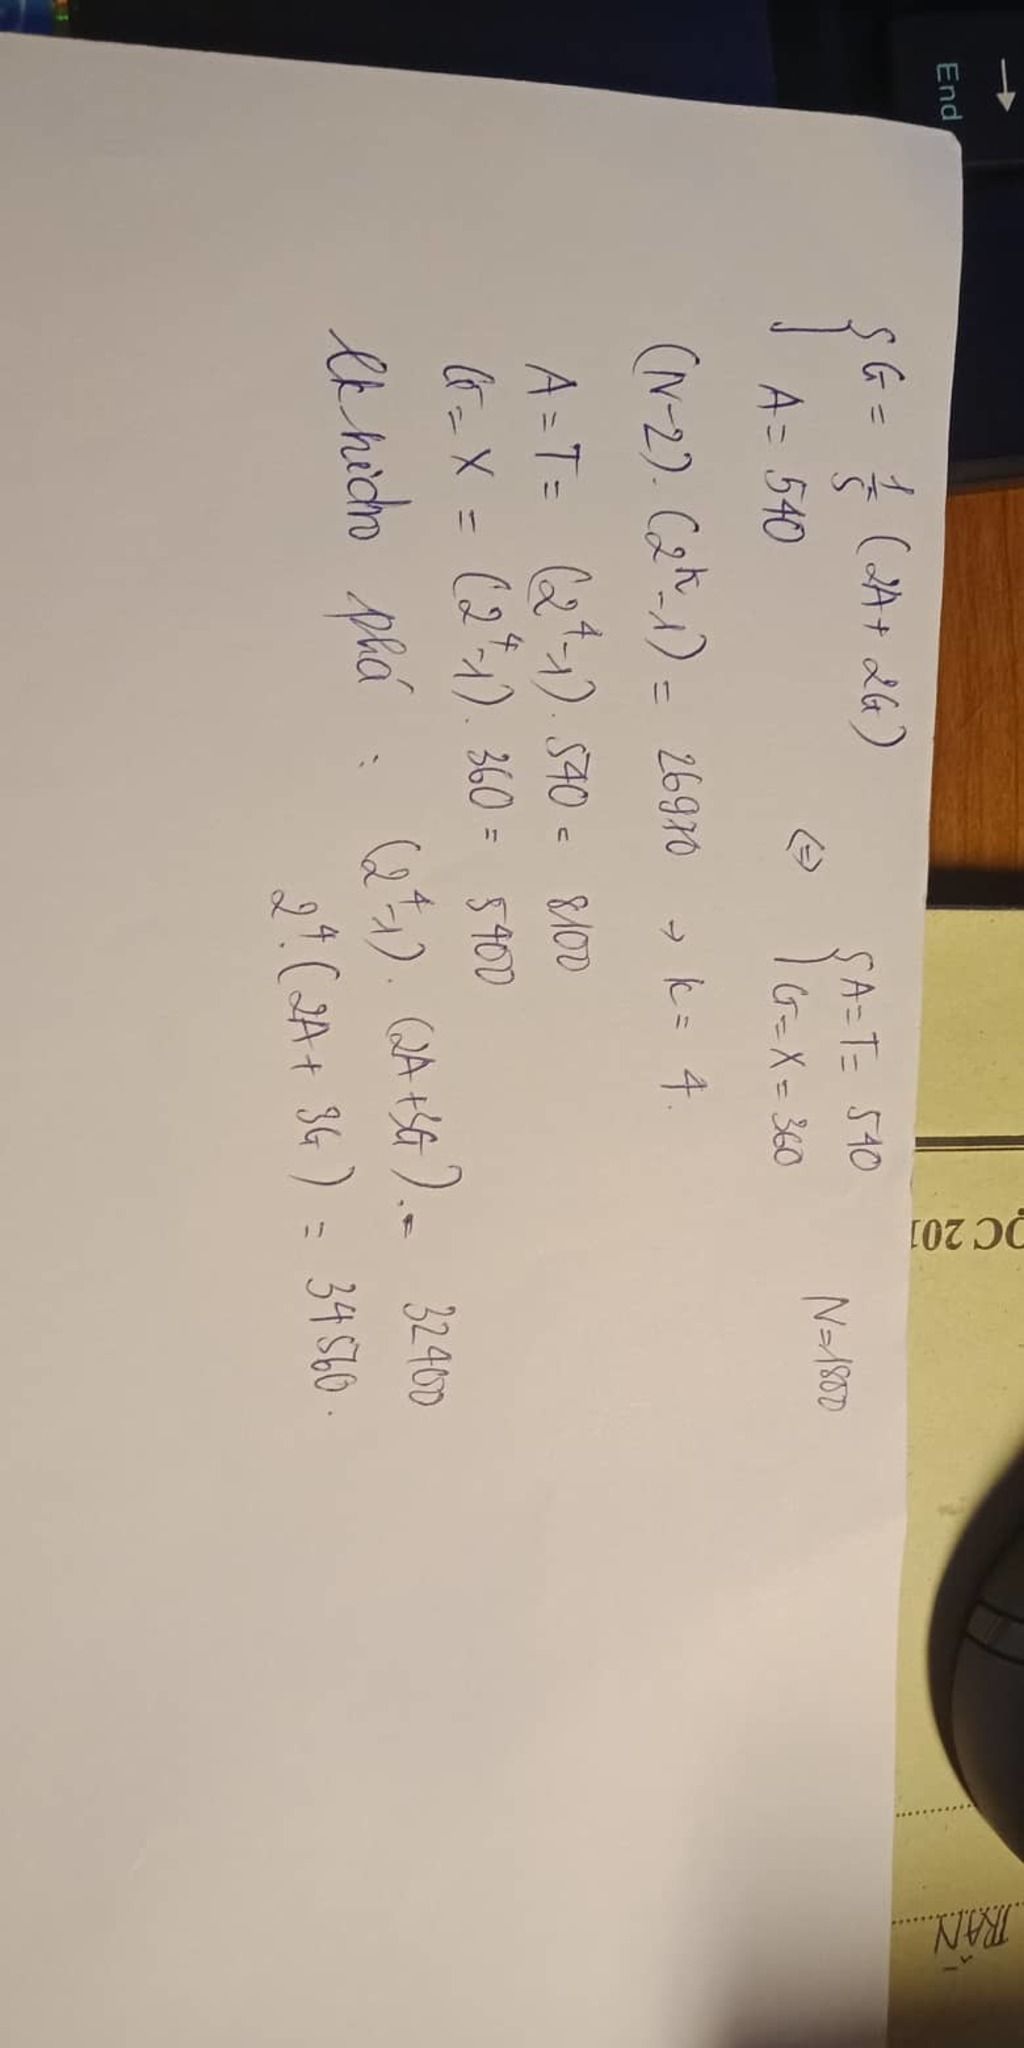 { G = 1/5 (2A + 2G)
A = 540
⇔ { A = T = 540
G = X = 360
N = 1800
(N-2). (2^k - 1) = 26970 → k = 4.
A = T = (2^4 - 1). 540 = 8100
G = X = (2^4 - 1). 360 = 5400
lk hiđro phá : (2^4 - 1). (2A + 3G) = 32400
2^4. (2A + 3G) = 34560.
End
→
QC 201
TRẦN